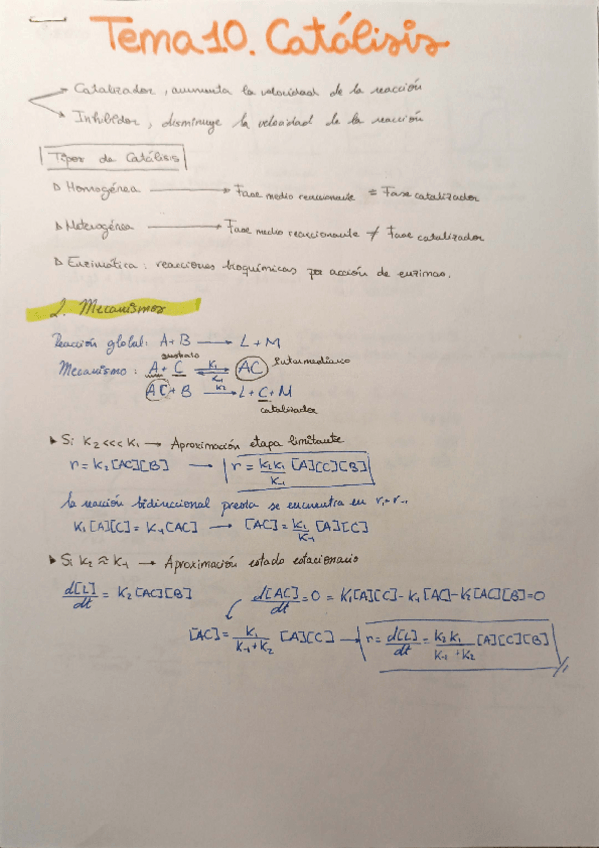 Tema 10. Catálisis
Catalizador, aumenta la velocidad de la reacción
Inhibidor, disminuye la velocidad de la reacción
Tipos de Catálisis
▷ Homogénea → Fase medio reaccionante = Fase catalizador
▷ Heterogénea → Fase medio reaccionante ≠ Fase catalizador
▷ Enzimática: reacciones bioquímicas por acción de enzimas.
2. Mecanismos
Reacción global: A+B → L+M
sustrato
Mecanismo: A+C ⇌ AC intermediario
K₁
K₋₁
AC+B → L+C+M
K₂
catalizador
▸ Si K₂ <<< K₁ → Aproximación etapa limitante
r = K₂[AC][B] → r = K₂K₁/K₋₁ [A][C][B]
la reacción bidireccional previa se encuentra en r₁=r₋₁
K₁[A][C] = K₋₁[AC] → [AC] = K₁/K₋₁ [A][C]
▸ Si K₂ ≈ K₋₁ → Aproximación estado estacionario
d[L]/dt = K₂[AC][B] d[AC]/dt = 0 = K₁[A][C] - K₋₁[AC] - K₂[AC][B] = 0
[AC] = K₁/K₋₁+K₂ [A][C] → r = d[L]/dt = K₂K₁/K₋₁+K₂ [A][C][B]